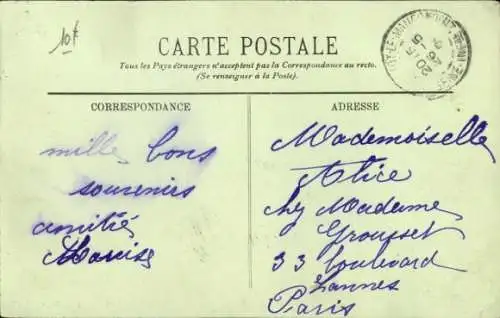 10f
CARTE POSTALE
Tous les Pays étrangers n'acceptent pas la Correspondance au recto.
(Se renseigner à la Poste).
CORRESPONDANCE
ADRESSE
mille bons
souvenirs
amitié
Mademoiselle
Alice
chez Madame
Grousset
33 boulevard
Lannes
Paris